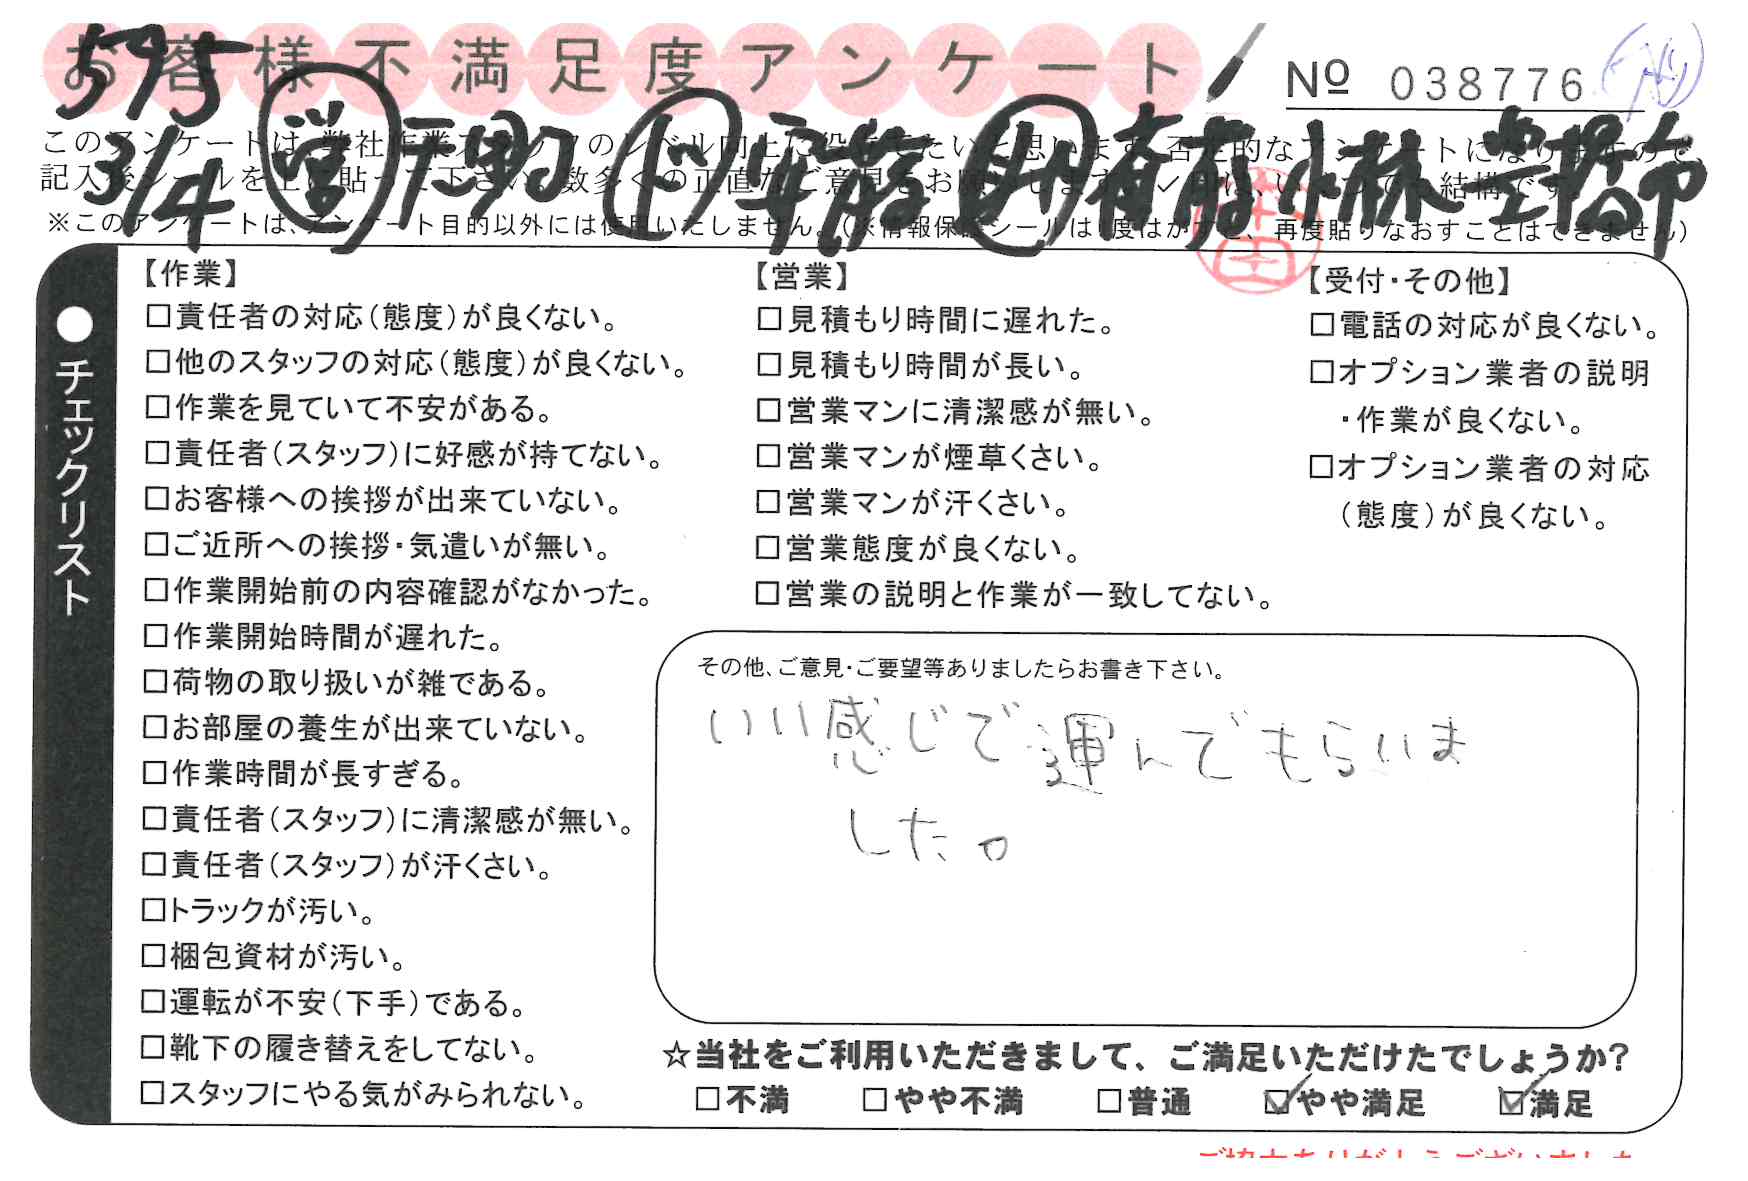 お客様不満足度アンケート
№ 038776
595
3/4 営 天野 ド 安藤 サ 有薗 小林 豊橋市
このアンケートは、弊社作業スタッフのレベル向上に役立てたいと思います。否定的なアンケートになりますので、
記入後シールを上に貼って下さい。数多くの正直なご意見をお願いします。✓印は、いくつでも結構です。
※このアンケートは、アンケート目的以外には使用いたしません。(※情報保護シールは1度はがすと、再度貼りなおすことはできません)
●チェックリスト
【作業】
□責任者の対応(態度)が良くない。
□他のスタッフの対応(態度)が良くない。
□作業を見ていて不安がある。
□責任者(スタッフ)に好感が持てない。
□お客様への挨拶が出来ていない。
□ご近所への挨拶・気遣いが無い。
□作業開始前の内容確認がなかった。
□作業開始時間が遅れた。
□荷物の取り扱いが雑である。
□お部屋の養生が出来ていない。
□作業時間が長すぎる。
□責任者(スタッフ)に清潔感が無い。
□責任者(スタッフ)が汗くさい。
□トラックが汚い。
□梱包資材が汚い。
□運転が不安(下手)である。
□靴下の履き替えをしてない。
□スタッフにやる気がみられない。
【営業】
□見積もり時間に遅れた。
□見積もり時間が長い。
□営業マンに清潔感が無い。
□営業マンが煙草くさい。
□営業マンが汗くさい。
□営業態度が良くない。
□営業の説明と作業が一致してない。
【受付・その他】
□電話の対応が良くない。
□オプション業者の説明
・作業が良くない。
□オプション業者の対応
(態度)が良くない。
その他、ご意見・ご要望等ありましたらお書き下さい。
いい感じで運んでもらいま
した。
☆当社をご利用いただきまして、ご満足いただけたでしょうか?
□不満 □やや不満 □普通 ☑やや満足 ☑満足
ご協力ありがとうございました